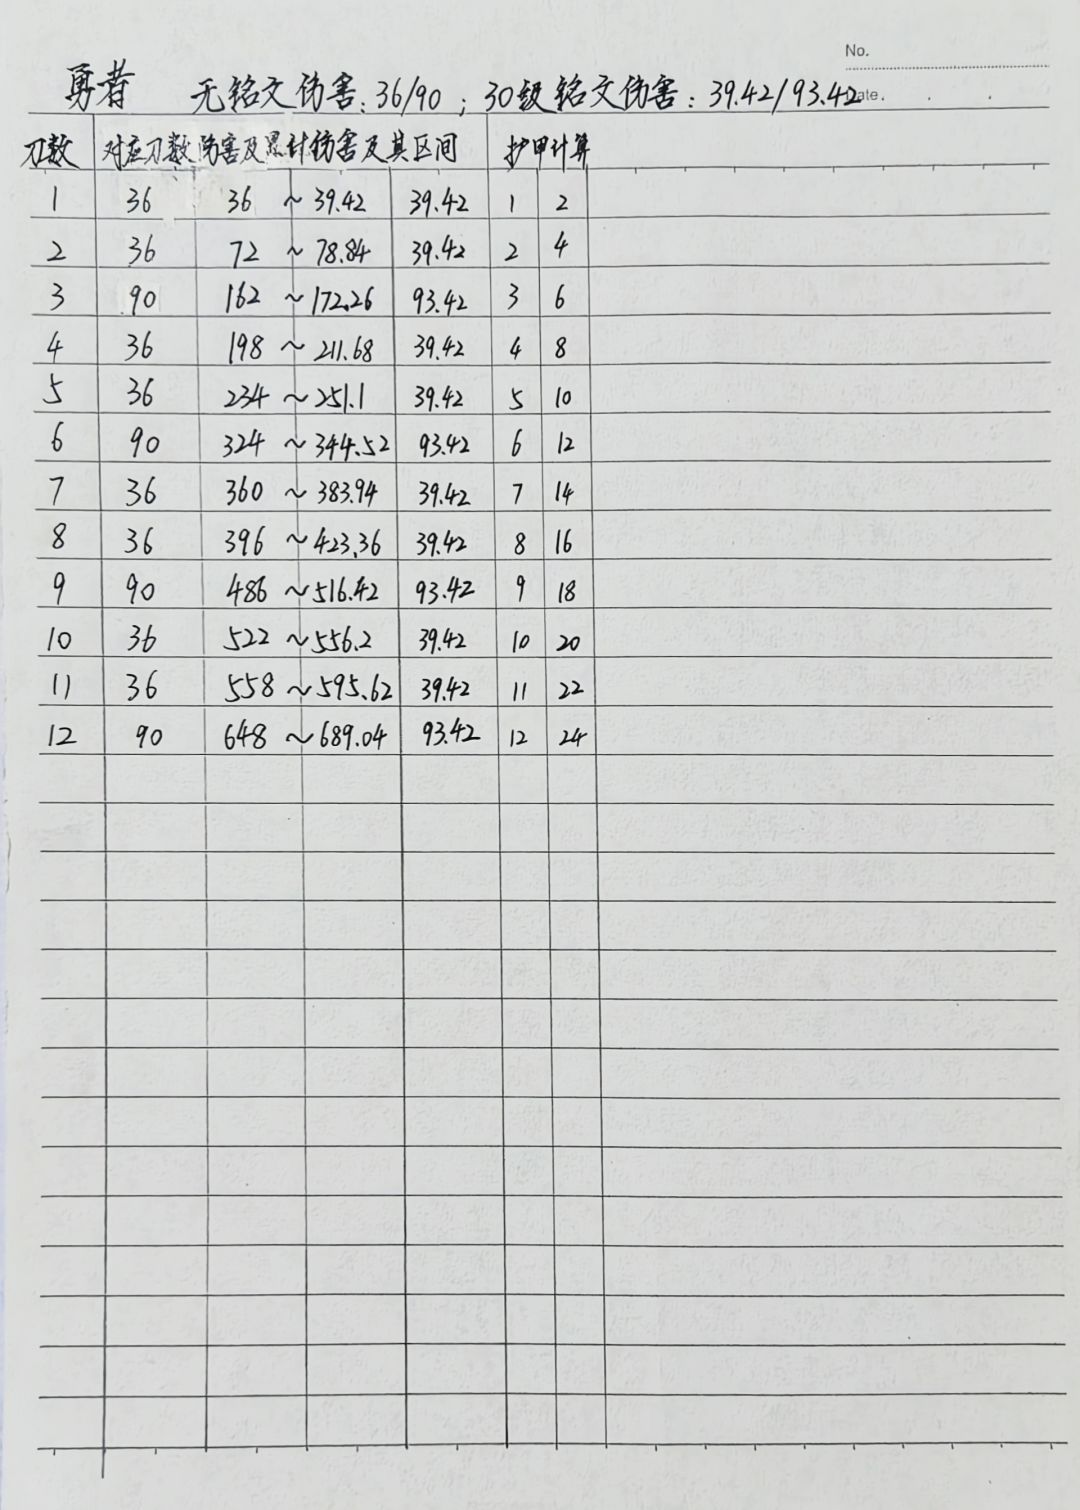 No.
勇者 无铭文伤害:36/90;30级铭文伤害:39.42/93.42
ate.
刀数 对应刀数伤害及累计伤害及其区间 护甲计算
1 36 36 ~ 39.42 39.42 1 2
2 36 72 ~ 78.84 39.42 2 4
3 90 162 ~ 172.26 93.42 3 6
4 36 198 ~ 211.68 39.42 4 8
5 36 234 ~ 251.1 39.42 5 10
6 90 324 ~ 344.52 93.42 6 12
7 36 360 ~ 383.94 39.42 7 14
8 36 396 ~ 423.36 39.42 8 16
9 90 486 ~ 516.42 93.42 9 18
10 36 522 ~ 556.2 39.42 10 20
11 36 558 ~ 595.62 39.42 11 22
12 90 648 ~ 689.04 93.42 12 24